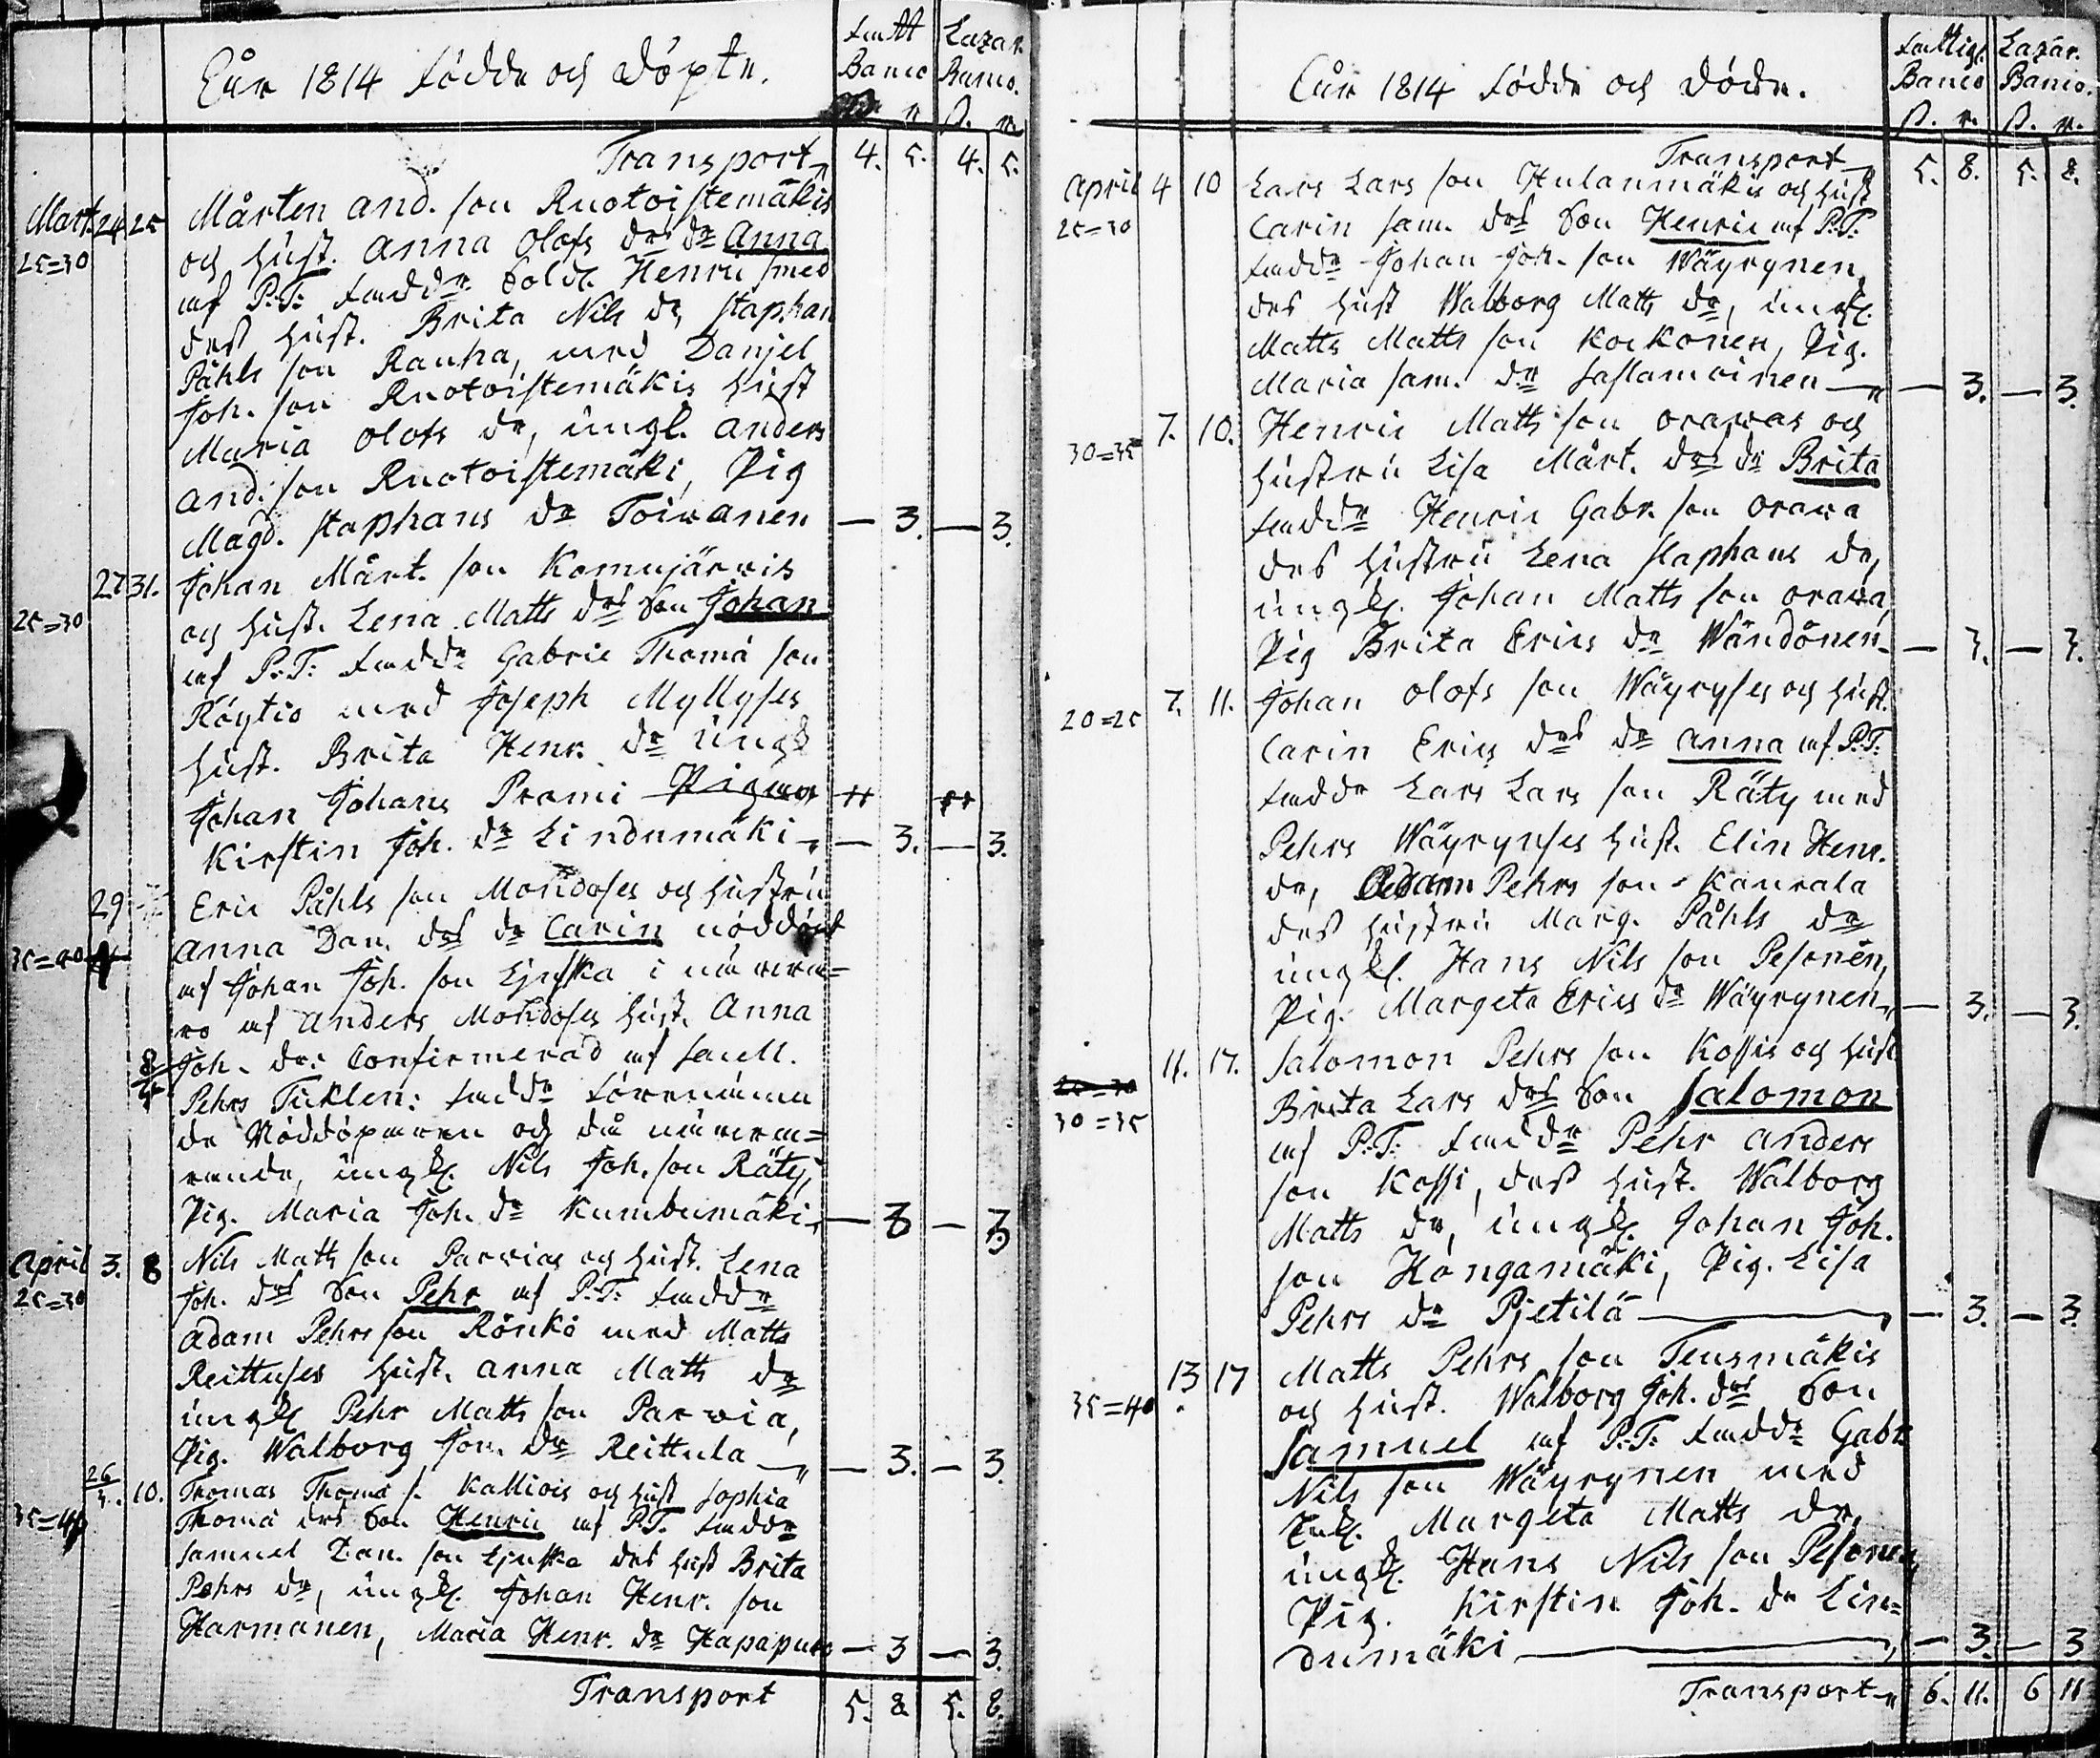 År 1814 födde och döpte.
fatt Lazar.
Banco Banco.
Transport 4. 5. 4. 5.
Mart. 24 25 Mårten And. son Ruotoistemäkis
25=30 och hust. Anna Olofs drs dr Anna
af P:T: fadde. Sold. Henric Smed
dess hust. Brita Nils dr, Staphan
Påhls son Rauha, med Danjel
Joh. son Ruotoistemäkis hust
Maria Olofs dr, üngl. Anders
And. son Ruotoistemäki, Pig
Magd. Staphans dr Toiwanen — 3. — 3.
27 31. Johan Mårt. son Komujärwis
25=30 och hust. Lena Matts drs Son Johan
af P:T: fadde Gabric Thomä son
Köytiö med Joseph Myllyses
hust. Brita Henr. dr üngk
Johan Johans Prami
Kirstin Joh. dr Lindumäki — 3. — 3.
29 Eric Påhls son Mondoses och hustrü
35=40 Anna Dan. drs dr Carin nöddöpt
af Johan Joh. son Ljuska i närwa=
ro af Anders Mondoses hust. Anna
8/4 Joh. dr: Confirmerad af Sacell.
Pehrs Ticklen: fadde förenämn
de Nöddöparen och då närwa=
rande, üngk. Nils Joh. son Räty,
Pig. Maria Joh. dr Kumbumäki — 3 — 3
April 3. 8 Nils Matts son Parwias och hust. Lena
25=30 Joh. drs Son Pehr af P:T: fadde
Adam Pehrs son Rönkö med Matts
Reittuses hust. Anna Matts dr
üngk Pehr Matts son Parwia,
Pig. Walborg Joh. dr Reittula — 3. — 3.
10. Thomas Thomä s. Kalliois och hust Sophia
Thomä drs Son Henric af P:T. fadde
Samuel Dan. son Ljuska des hust Brita
Pehrs dr, üngk. Johan Henr. son
Harmanen, Maria Henr. dr Hapapuro — 3 — 3.
Transport 5. 8. 5. 8.
År 1814 födde och döde.
fattig. Lazar.
Banco Banco.
Transport 5. 8. 5. 8.
April 4 10 Lars Lars son Hulanmäkis och hust
25=30 Carin Sam. drs Son Henric af P:T:
fadde Johan Joh. son Wäyrynen,
des hust Walborg Matts dr, üngk.
Matts Matts son Kockonen, Pig.
Maria Sam. dr — 3. — 3.
7. 10. Henric Matts son Orawas och
30=35 hustrü Lisa Mårt. drs dr Brita
fadde Henric Gabr. son Orawa
des hustrü Lena Staphans dr,
üngk. Johan Matts son Orawa,
Pig Brita Erics dr Wändönen — 3. — 3.
7. 11. Johan Olofs son Wäyryses och hust.
20=25 Carin Erics drs dr Anna af P:T:
fadde Lars Lars son Räty med
Pehrs Wäyrynses hust. Elin Henr.
dr, Adam Pehrs son Kaurala
des hustrü Marg. Påhls dr
üngk. Hans Nils son Pesonen,
Pig. Margeta Erics dr Wäyrynen — 3. — 3.
11. 17. Salomon Pehrs son Kossis och hust
25=30
30=35 Brita Lars drs Son Salomon
af P:T: fadde Pehr Anders
son Kossi, dess hust. Walborg
Matts dr, üngk. Johan Joh.
son Hongamäki, Pig. Lisa
Pehrs dr Pjetilä — 3. — 3.
13 17 Matts Pehrs son Teusmäkis
35=40 och hust. Walborg Joh. drs Son
Samuel af P:T: fadde Gabr
Nils son Wäyrynen med
Enk. Margeta Matts dr,
üngk. Hans Nils son Pesonen,
Pig. Kirstin Joh. dr Lin=
dumäki — 3. — 3
Transport 6. 11. 6 11